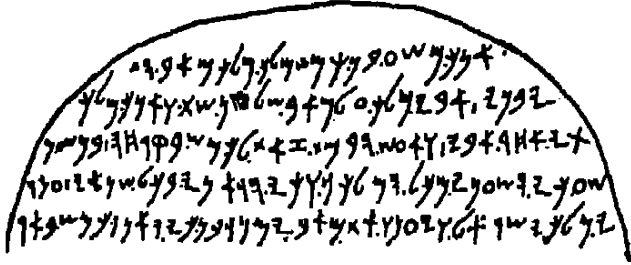 𐤀𐤍𐤊.𐤌𐤔𐤏.𐤁𐤍.𐤊𐤌𐤔𐤌𐤋𐤊.𐤌𐤋𐤊.𐤌𐤀𐤁.𐤄𐤃
𐤉𐤁𐤍𐤉|𐤀𐤁𐤉.𐤌𐤋𐤊.𐤏𐤋.𐤌𐤀𐤁.𐤔𐤋𐤔𐤍.𐤔𐤕.𐤅𐤀𐤍𐤊.𐤌𐤋𐤊
𐤕𐤉.𐤀𐤇𐤓.𐤀𐤁𐤉|𐤅𐤀𐤏𐤔.𐤄𐤁𐤌𐤕.𐤆𐤀𐤕.𐤋𐤊𐤌𐤔.𐤁𐤒𐤓𐤇𐤄|𐤁𐤌𐤔
𐤔𐤏.𐤊𐤉.𐤄𐤔𐤏𐤍𐤉.𐤌𐤊𐤋.𐤄𐤌𐤋𐤊𐤍.𐤅𐤊𐤉.𐤄𐤓𐤀𐤍𐤉.𐤁𐤊𐤋.𐤔𐤍𐤀𐤉|𐤏𐤌𐤓
𐤉.𐤌𐤋𐤊.𐤉𐤔𐤓𐤀𐤋.𐤅𐤉𐤏𐤍𐤅.𐤀𐤕.𐤌𐤀𐤁.𐤉𐤌𐤍.𐤓𐤁𐤍.𐤊𐤉.𐤉𐤀𐤍𐤐.𐤊𐤌𐤔.𐤁𐤀𐤓